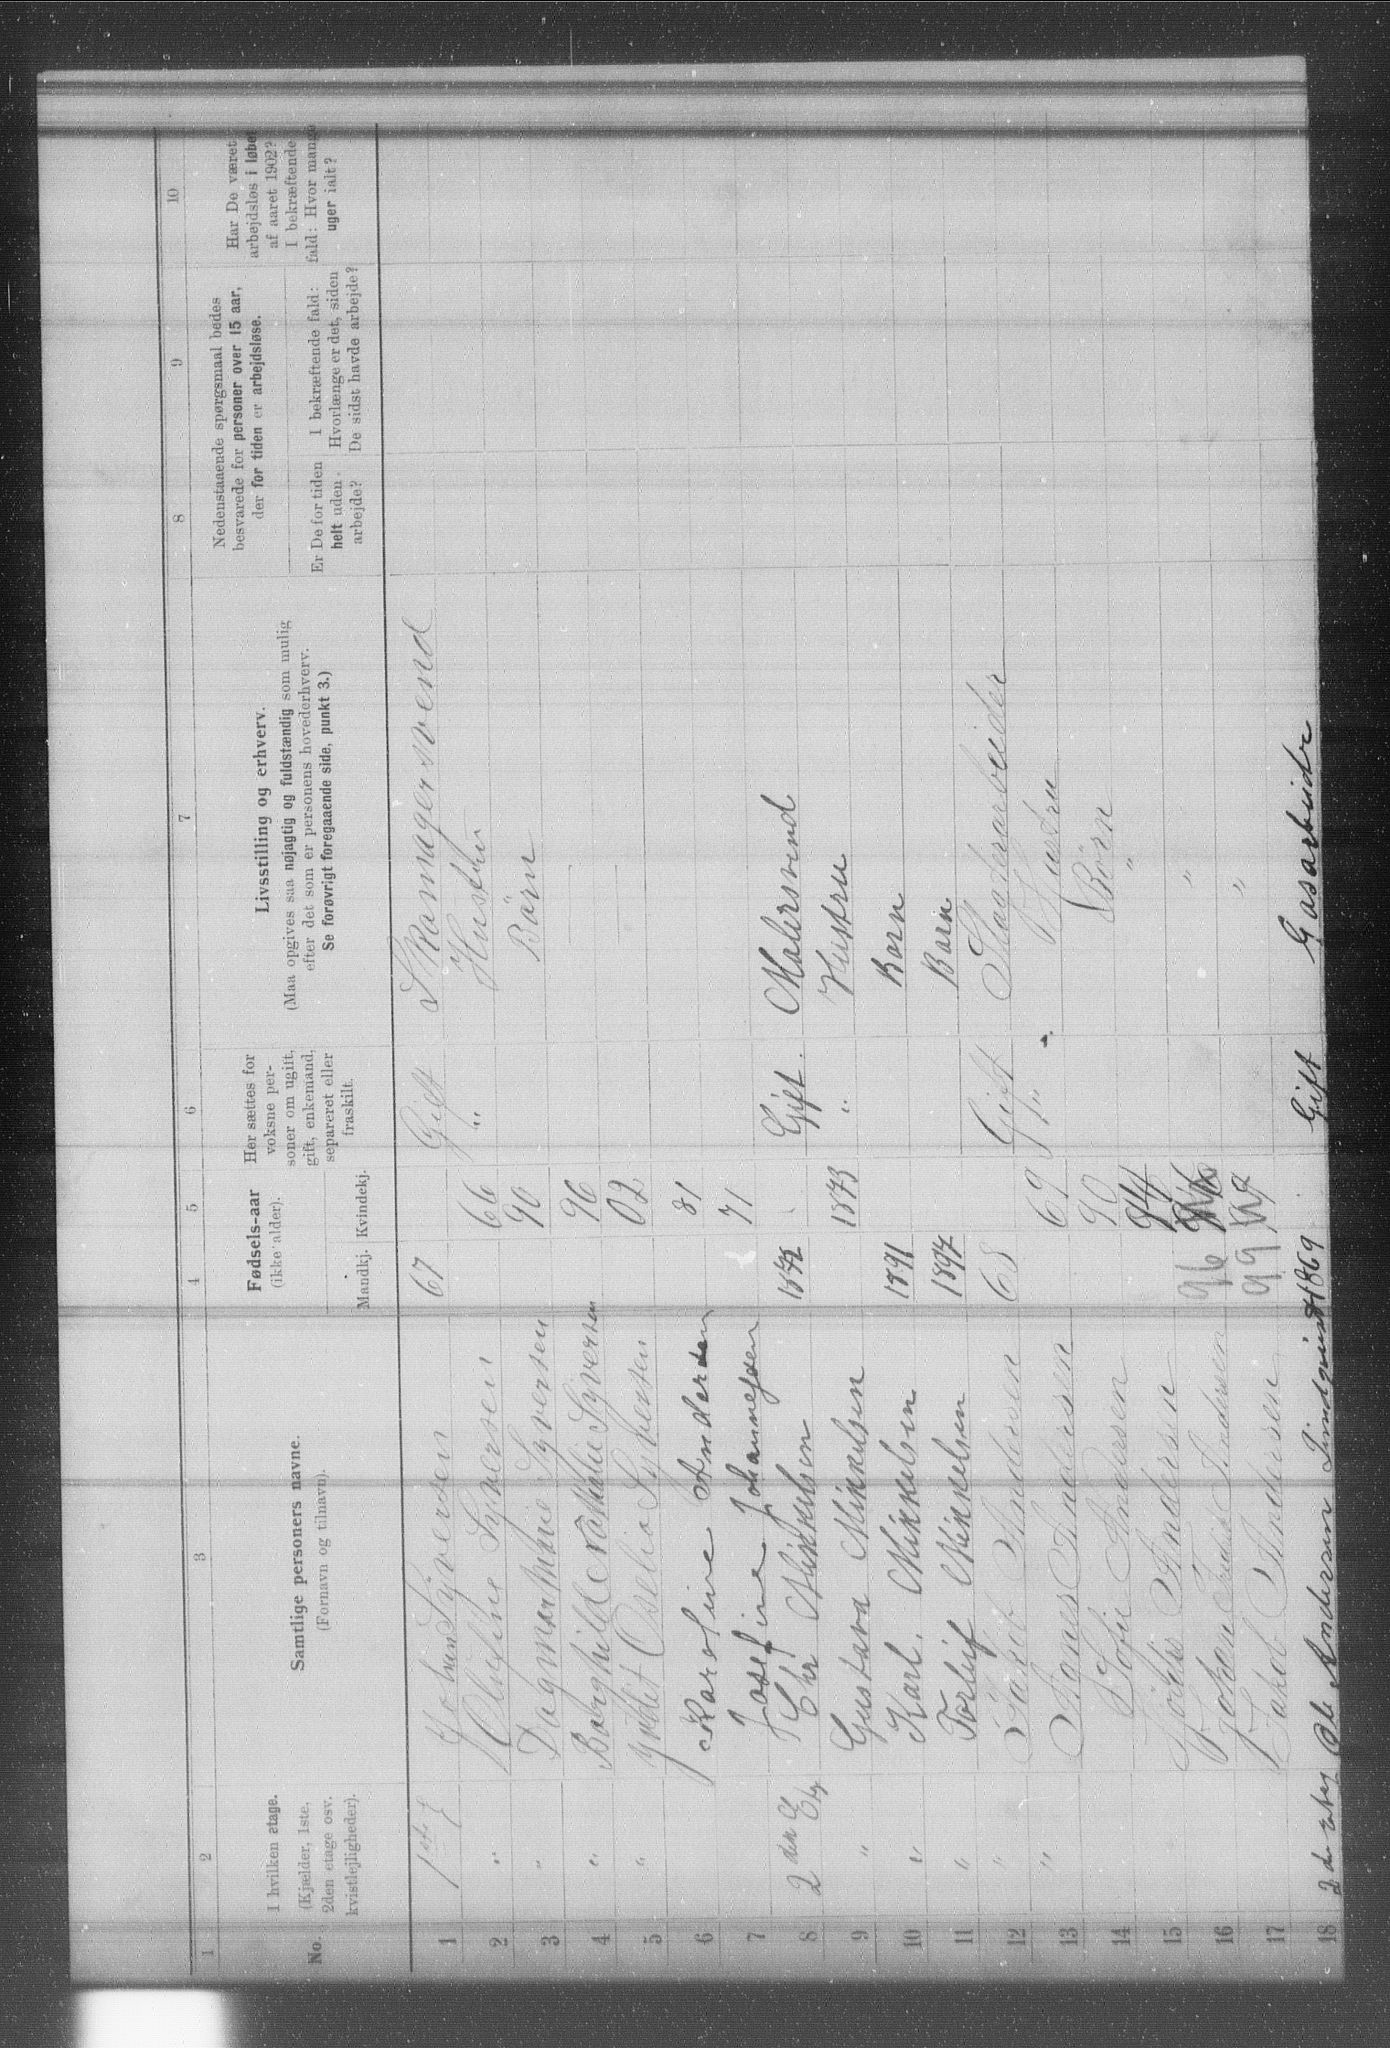 1 2 3 4 5 6 7 8 9 10
No.
I hvilken etage.
(Kjælder, 1ste,
2den etage osv.
kvistlejligheder).
Samtlige personers navne.
(Fornavn og tilnavn).
Fødsels-aar
(ikke alder).
Mandkj. Kvindekj.
Her sættes for
voksne per-
soner om ugift,
gift, enkemand,
separeret eller
fraskilt.
Livsstilling og erhverv.
(Maa opgives saa nøjagtig og fuldstændig som mulig
efter det som er personens hovederhverv.
Se forøvrigt foregaaende side, punkt 3.)
Nedenstaaende spørgsmaal bedes
besvarede for personer over 15 aar,
der for tiden er arbejdsløse.
Er De for tiden
helt uden
arbejde?
I bekræftende fald:
Hvorlænge er det, siden
De sidst havde arbejde?
Har De været
arbejdsløs i løbet
af aaret 1902?
I bekræftende
fald: Hvor mange
uger ialt?
1 1ste E Johan Syversen 67 Gift Skomagersvend
2 " Olufine Syversen 66 " Hustru
3 " Dagmar Marie Syversen 90 Börn
4 " Borghild Nathalie Syversen 96
5 " Syversen 02
6 Karoline Andersen 81
7 Josefine Johannesen 71
8 2den Etg Chr Mikkelsen 1872 Gift. Malersvend
9 " Gustava Mikkelsen 1873 " Hustru
10 " Karl. Mikkelsen 1891 Barn
11 " Torleif Mikkelsen 1897 Barn
12 " Jakob Andersen 68 Gift
13 " Andersen 69 " Hustru
14 Sofie Andersen 90 Börn
15 Andersen 94 "
16 Johan Andersen 96 "
17 Jakob Andersen 99 "
18 2de etg Andersen Lindquist 1869 Gift Gasarbeider